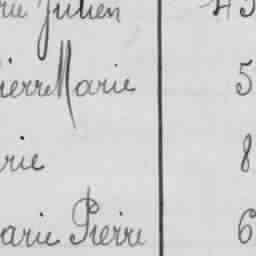 rie Julien 45
ierre Marie 5
rie 8
arie Pierre 6